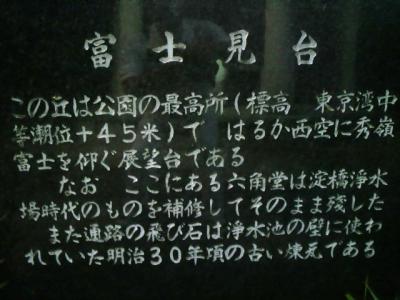 富士見台
この丘は公園の最高所(標高　東京湾中
等潮位+45米)で　はるか西空に秀嶺
富士を仰ぐ展望台である
なお　ここにある六角堂は淀橋浄水
場時代のものを補修してそのまま残した
また通路の飛び石は浄水池の壁に使わ
れていた明治30年頃の古い煉瓦である